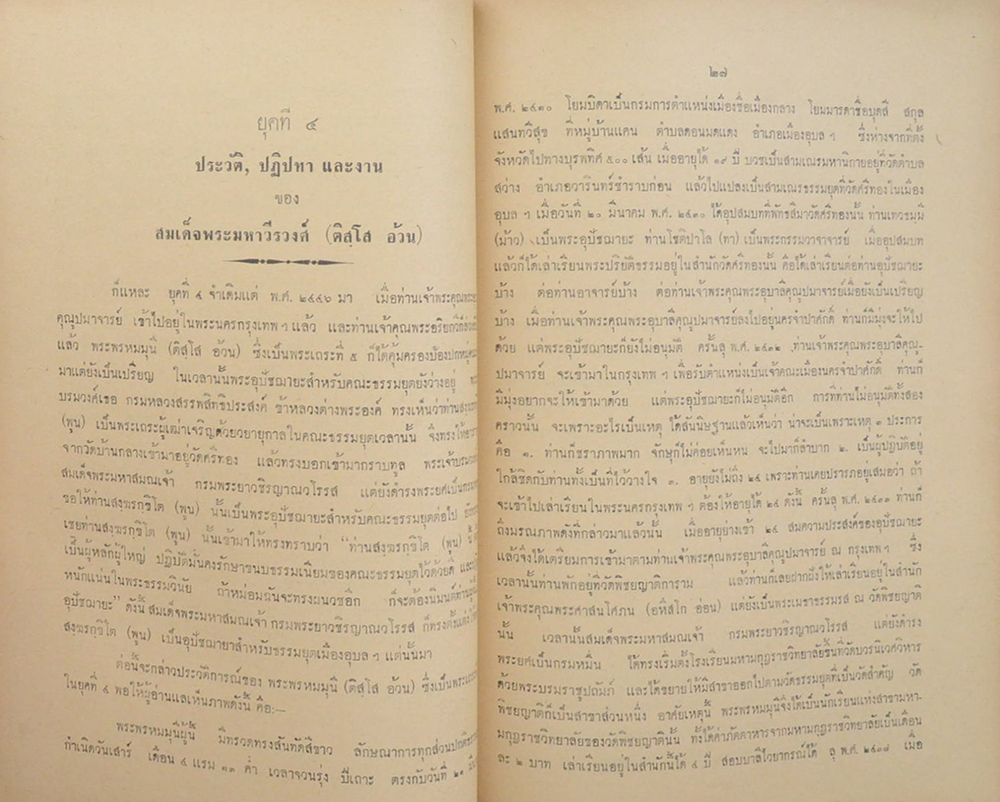 ยุคที่ ๔
ประวัติ, ปฏิปทา และงาน
ของ
สมเด็จพระมหาวีรวงศ์ (ติสฺโส อ้วน)
ก็แหละ ยุคที่ ๔ จำเดิมแต่ พ.ศ. ๒๔๔๖ มา เมื่อท่านเจ้าพระคุณพระ
คุณูปมาจารย์ เข้าไปอยู่ในพระนครกรุงเทพ ฯ แล้ว และท่านเจ้าคุณพระอริยกวีก็
แล้ว พระพรหมมุนี (ติสฺโส อ้วน) ซึ่งเป็นพระเถระที่ ๕ ก็ได้คุ้มครองป้องปก
มาแต่ยังเป็นเปรียญ ในเวลานั้นพระอุปัชฌายะสำหรับคณะธรรมยุตยังว่างอยู่
บรมวงศ์เธอ กรมหลวงสรรพสิทธิประสงค์ ข้าหลวงต่างพระองค์ ทรงเห็นว่าท่าน
(พูน) เป็นพระเถระผู้เฒ่าเจริญด้วยวยายุกาลในคณะธรรมยุตเวลานั้น จึงทรงให้
จากวัดบ้านกลางเข้ามาอยู่วัดศรีทอง แล้วทรงบอกเข้ามากราบทูล พระเจ้า
สมเด็จพระมหาสมณเจ้า กรมพระยาวชิรญาณวโรรส แต่ยังดำรงพระยศเป็น
ขอให้ท่านสงฺฆรกฺขิโต (พูน) นั้นเป็นพระอุปัชฌายะสำหรับคณะธรรมยุตต่อไป
เชยท่านสงฺฆรกฺขิโต (พูน) นั้นเข้ามาให้ทรงทราบว่า “ท่านสงฺฆรกฺขิโต (พูน)
เป็นผู้หลักผู้ใหญ่ ปฏิบัติมั่นคงรักษาขนบธรรมเนียมของคณะธรรมยุตไว้ด้วยดี
หนักแน่นในพระธรรมวินัย ถ้าหม่อมฉันจะทรงผนวชอีก ก็จะต้องนิมนต์ท่าน
อุปัชฌายะ” ดังนี้ สมเด็จพระมหาสมณเจ้า กรมพระยาวชิรญาณวโรรส ก็ทรงตั้งแต่ง
สงฺฆรกฺขิโต (พูน) เป็นอุปัชฌายาสำหรับธรรมยุตเมืองอุบล ฯ แต่นั้นมา
ต่อนี้จะกล่าวประวัติการณ์ของ พระพรหมมุนี (ติสฺโส อ้วน) ซึ่งเป็นพระเถระ
ในยุคที่ ๔ พอให้ผู้อ่านแลเห็นภาพดังนี้ คือ:—
พระพรหมมุนีผู้นี้ มีทรวดทรงสันทัดสีขาว ลักษณาการทุกส่วนปกติ
กำเนิดวันเสาร์ เดือน ๔ แรม ๑๑ ค่ำ เวลาจวนรุ่ง ปีเถาะ ตรงกับวันที่ ๒๑
๒๗
พ.ศ. ๒๔๑๐ โยมบิดาเป็นกรมการตำแหน่งเมืองชื่อเมืองกลาง โยมมารดาชื่อบุตสี สกุล
แสนทวีสุข ที่หมู่บ้านแคน ตำบลดอนมดแดง อำเภอเมืองอุบล ฯ ซึ่งห่างจากที่ตั้ง
จังหวัดไปทางบุรพทิศ ๕๐๐ เส้น เมื่ออายุได้ ๑๙ ปี บวชเป็นสามเณรมหานิกายอยู่ที่วัดตำบล
สว่าง อำเภอวารินทร์ชำราบก่อน แล้วไปแปลงเป็นสามเณรธรรมยุตที่วัดศรีทองในเมือง
อุบล ฯ เมื่อวันที่ ๒๐ มีนาคม พ.ศ. ๒๔๓๐ ได้อุปสมบทที่พัทธสีมาวัดศรีทองนั้น ท่านเทวธมฺมี
(ม้าว) เป็นพระอุปัชฌายะ ท่านโชติปาโล (ทา) เป็นพระกรรมวาจาจารย์ เมื่ออุปสมบท
แล้วก็ได้เล่าเรียนพระปริยัติธรรมอยู่ในสำนักวัดศรีทองนั้น คือได้เล่าเรียนต่อท่านอุปัชฌายะ
บ้าง ต่อท่านอาจารย์บ้าง ต่อเจ้าพระคุณพระอุบาลีคุณูปมาจารย์เมื่อยังเป็นเปรียญ
บ้าง เมื่อท่านเจ้าพระคุณพระอุบาลีคุณูปมาจารย์ลงไปอยู่นครจำปาศักดิ์ ท่านก็มีมุ่งจะให้ไป
ด้วย แต่พระอุปัชฌายะก็ยังไม่อนุมัติ ครั้นลุ พ.ศ. ๒๔๓๒ ท่านเจ้าพระคุณพระอุบาลีคุณู-
ปมาจารย์ จะเข้ามาในกรุงเทพ ฯ เพื่อรับตำแหน่งเป็นเจ้าคณะเมืองนครจำปาศักดิ์ ท่านก็
มีมุ่งอยากจะให้เข้ามาด้วย แต่พระอุปัชฌายะก็ไม่อนุมัติอีก การที่ท่านไม่อนุมัติทั้งสอง
คราวนั้น จะเพราะอะไรเป็นเหตุ ได้สันนิษฐานแล้วเห็นว่า น่าจะเป็นเพราะเหตุ ๓ ประการ
คือ ๑. ท่านก็ชราภาพมาก จักษุก็ไม่ค่อยเห็นหน จะไปมาก็ลำบาก ๒. เป็นผู้ปฏิบัติอยู่
ใกล้ชิดกับท่านทั้งเป็นที่ไว้วางใจ ๓. อายุยังไม่ถึง ๒๕ เพราะท่านเคยปรารภอยู่เสมอว่า ถ้า
จะเข้าไปเล่าเรียนในพระนครกรุงเทพ ฯ ต้องให้อายุได้ ๒๕ ดังนี้ ครั้นลุ พ.ศ. ๒๔๓๓ ท่านก็
ถึงมรณภาพดังที่กล่าวมาแล้วนั้น เมื่ออายุย่างเข้า ๒๕ สมความประสงค์ของอุปัชฌายะ
แล้วจึงได้เตรียมการเข้ามาตามท่านเจ้าพระคุณพระอุบาลีคุณูปมาจารย์ ณ กรุงเทพ ฯ ซึ่ง
เวลานั้นท่านพักอยู่ที่วัดพิชยญาติการาม แล้วท่านก็เลยฝากฝังให้เล่าเรียนอยู่ในสำนัก
เจ้าพระคุณพระศาสนโศภน (อหึสโก อ่อน) แต่ยังเป็นพระเมธาธรรมรส ณ วัดพิชยญาติ
นั้น เวลานั้นสมเด็จพระมหาสมณเจ้า กรมพระยาวชิรญาณวโรรส แต่ยังดำรง
พระยศเป็นกรมหมื่น ได้ทรงเริ่มตั้งโรงเรียนมหามกุฎราชวิทยาลัยขึ้นที่วัดบวรนิเวศวิหาร
ด้วยพระบรมราชูปถัมภ์ และได้ขยายให้มีสาขาออกไปตามวัดธรรมยุตที่เป็นวัดสำคัญ วัด
พิชยญาติก็เป็นสาขาส่วนหนึ่ง อาศัยเหตุนี้ พระพรหมมุนีจึงได้เป็นนักเรียนแห่งสาขามหา-
มกุฎราชวิทยาลัยของวัดพิชยญาตินั้น ทั้งได้ค่าภัตตาหารจากมหามกุฎราชวิทยาลัยเป็นเดือน
ละ ๒ บาท เล่าเรียนอยู่ในสำนักนี้ได้ ๔ ปี สอบบาลีไวยากรณ์ได้ ลุ พ.ศ. ๒๔๓๘ เมื่อ